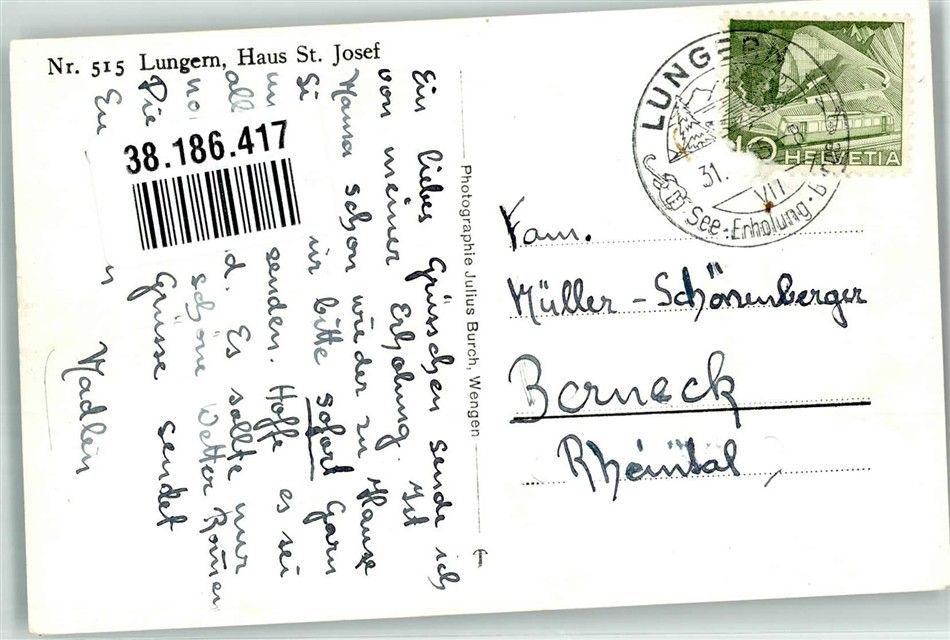 Nr. 515 Lungern, Haus St. Josef
Ein liebes Grüsschen sende ich
von meiner Erholung. Ist
Mama schon wieder zu Hause
Si mir bitte sofort Garn
senden. Hoffe es sei
all d. Es sollte nur
no schöne Wetter
Die Grüsse sendet
Eu
Madlein
38.186.417
Photographie Julius Burch, Wengen
LUNGERN
31. VII
See · Erholung
10 HELVETIA
Fam.
Müller - Schönenberger
Berneck
Rheintal